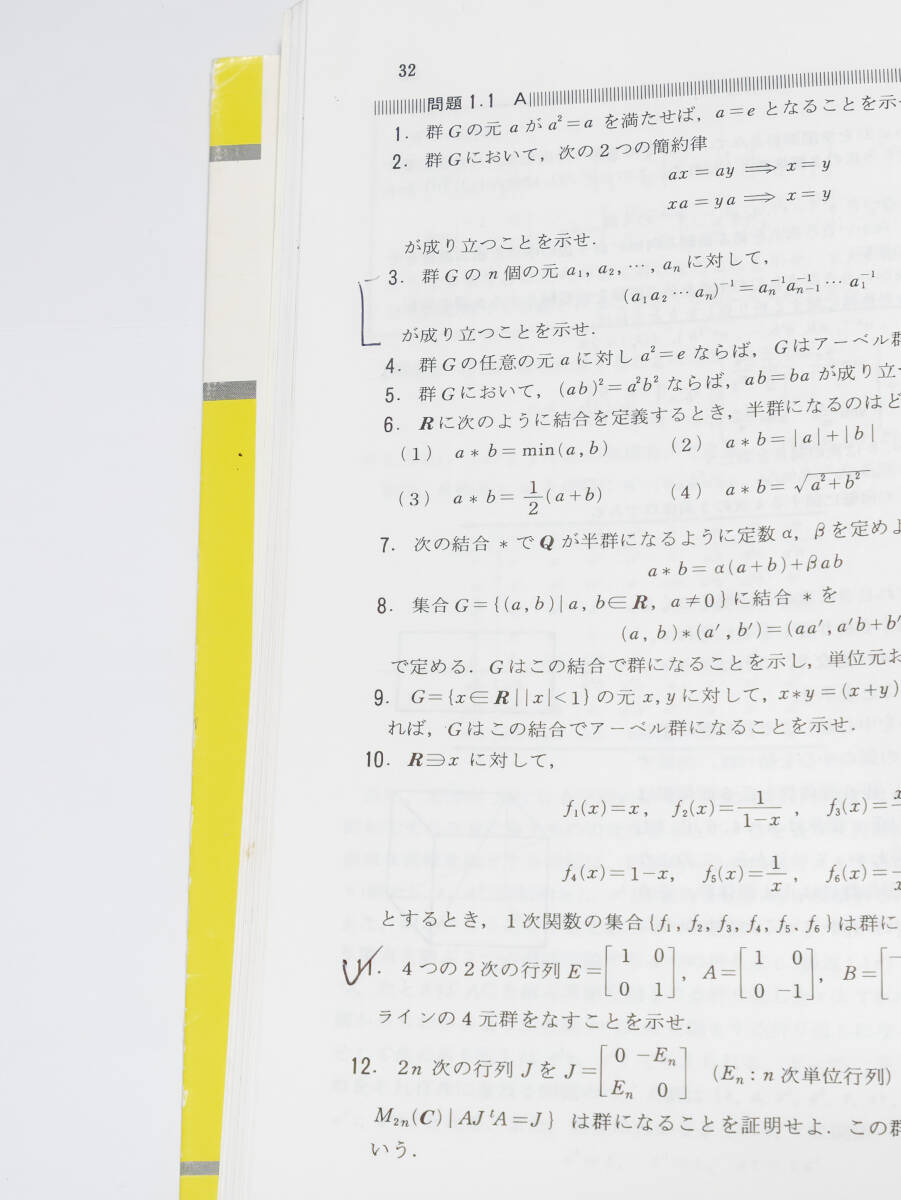 32
問題 1.1 A
1. 群Gの元 a が a²=a を満たせば, a=e となることを示
2. 群Gにおいて, 次の2つの簡約律
ax=ay ⟹ x=y
xa=ya ⟹ x=y
が成り立つことを示せ.
3. 群Gの n 個の元 a₁, a₂, …, aₙ に対して,
(a₁a₂…aₙ)⁻¹=aₙ⁻¹aₙ₋₁⁻¹…a₁⁻¹
が成り立つことを示せ.
4. 群Gの任意の元 a に対し a²=e ならば, Gはアーベル群
5. 群Gにおいて, (ab)²=a²b² ならば, ab=ba が成り立
6. Rに次のように結合を定義するとき, 半群になるのはど
(1) a*b=min(a,b) (2) a*b=|a|+|b|
(3) a*b=1/2(a+b) (4) a*b=√(a²+b²)
7. 次の結合 * で Q が半群になるように定数 α, β を定め
a*b=α(a+b)+βab
8. 集合 G={(a,b)|a, b∈R, a≠0} に結合 * を
(a, b)*(a′, b′)=(aa′, a′b+b′
で定める. Gはこの結合で群になることを示し, 単位元お
9. G={x∈R||x|<1} の元 x, y に対して, x*y=(x+y)
れば, Gはこの結合でアーベル群になることを示せ.
10. R∋x に対して,
f₁(x)=x, f₂(x)=1/(1−x), f₃(x)=
f₄(x)=1−x, f₅(x)=1/x, f₆(x)=
とするとき, 1次関数の集合{f₁, f₂, f₃, f₄, f₅, f₆}は群に
11. 4つの2次の行列 E=[1 0; 0 1], A=[1 0; 0 −1], B=[−
ラインの4元群をなすことを示せ.
12. 2n 次の行列 J を J=[0 −Eₙ; Eₙ 0] (Eₙ: n 次単位行列)
M₂ₙ(C)|AJᵗA=J} は群になることを証明せよ. この群
いう.